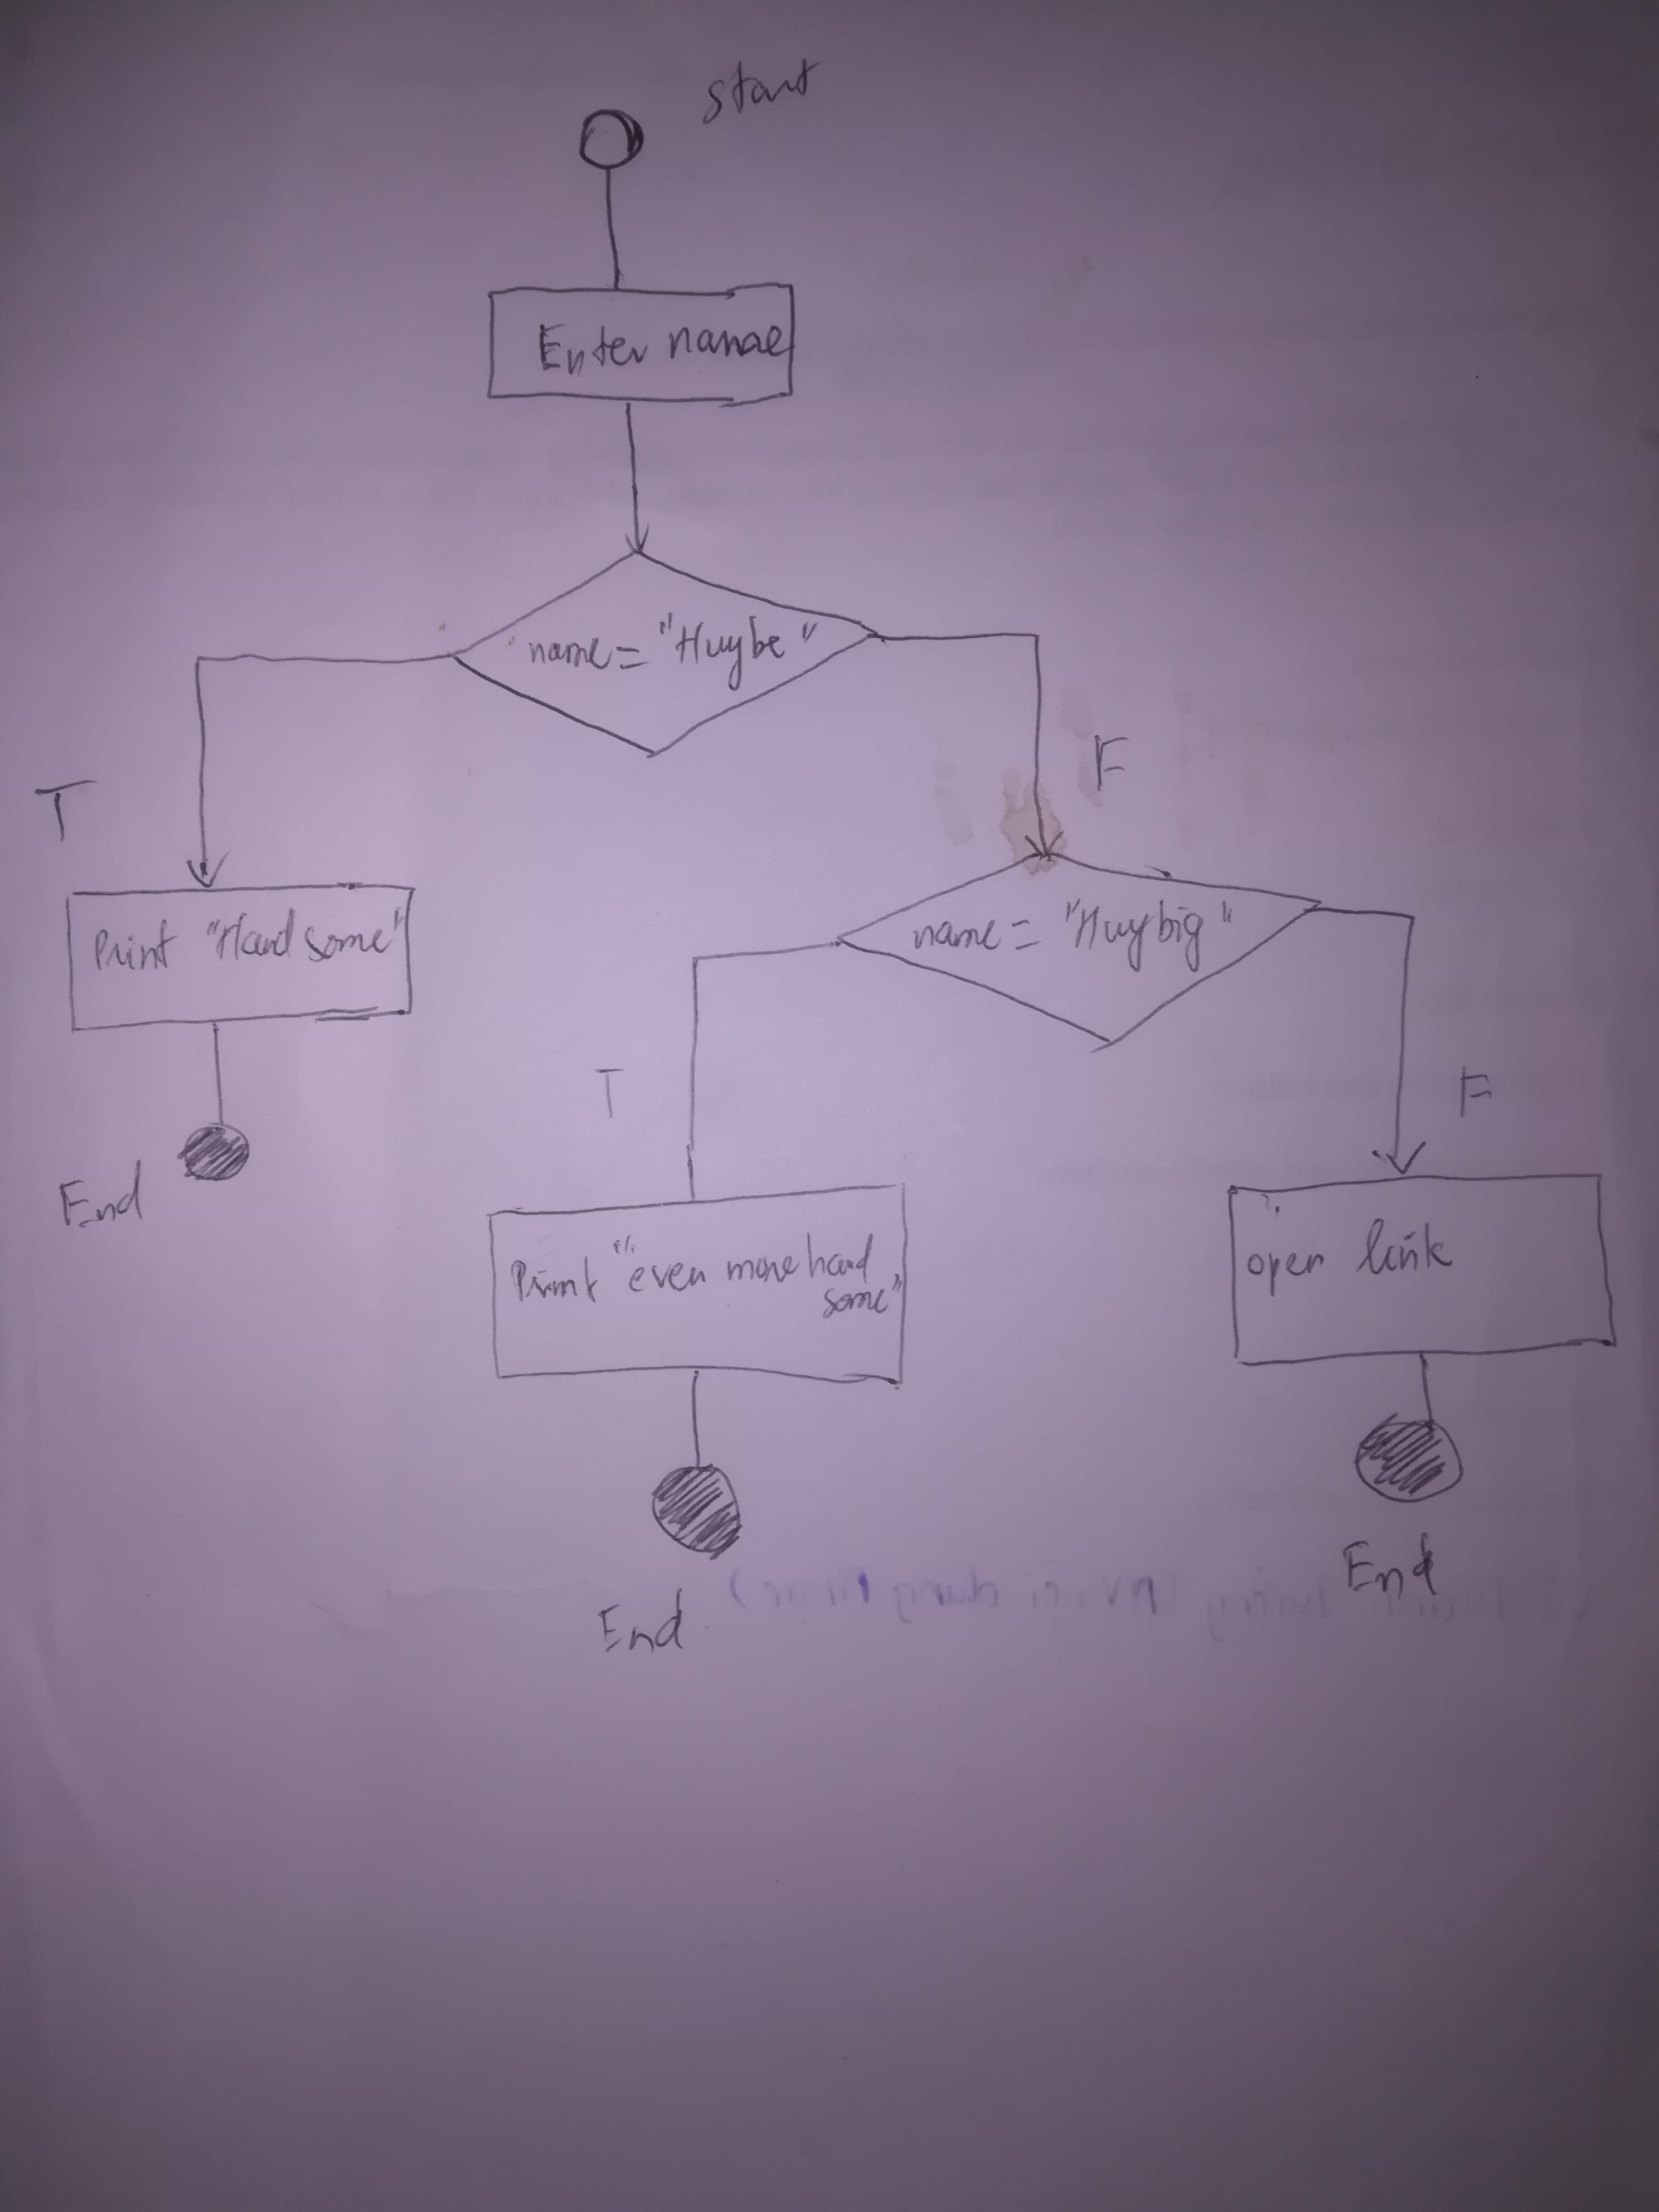 start
Enter name
name = "Huybe"
T
F
Print "Handsome"
name = "Huybig"
End
T
F
Print "even more hand
some"
open link
End
End